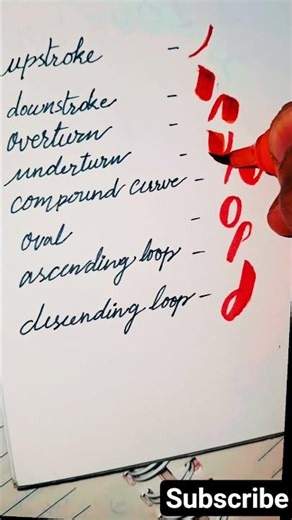 upstroke -
downstroke -
overturn -
underturn -
compound curve -
oval -
ascending loop -
descending loop -
Subscribe